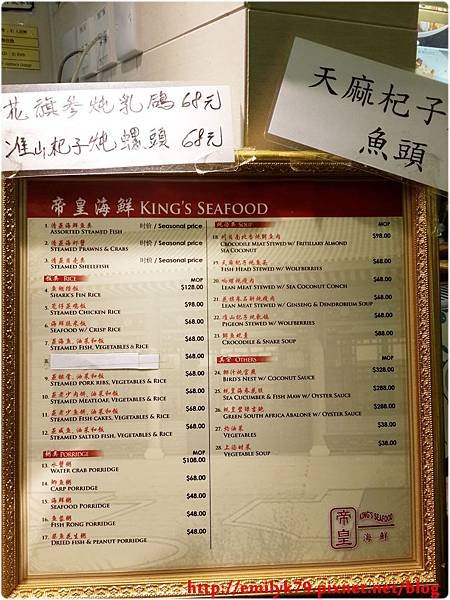 花旗參炖乳鴿 68元
准山杞子炖螺頭 68元
天麻杞子
魚頭
帝皇海鮮 KING'S SEAFOOD
1. 清蒸海鮮魚类 时价 / Seasonal price
ASSORTED STEAMED FISH
2. 清蒸海虾蟹 时价 / Seasonal price
STEAMED PRAWNS & CRABS
3. 清蒸贝壳类 时价 / Seasonal price
STEAMED SHELLFISH
飯類 RICE MOP
4. 魚翅撈飯 $128.00
SHARK'S FIN RICE
5. $98.00
STEAMED CHICKEN RICE
6. 海鮮脆米飯 $68.00
SEAFOOD W/ CRISP RICE
7. 蒸海魚, 油菜和飯 $88.00
STEAMED FISH, VEGETABLES & RICE
9. 蒸排骨, 油菜和飯 $48.00
STEAMED PORK RIBS, VEGETABLES & RICE
10. $48.00
STEAMED MEATLOAF, VEGETABLES & RICE
11. $48.00
STEAMED FISH CAKES, VEGETABLES & RICE
12. 蒸咸魚, 油菜和飯 $48.00
STEAMED SALTED FISH, VEGETABLES & RICE
粥类 PORRIDGE MOP
13. 水蟹粥 $108.00
WATER CRAB PORRIDGE
14. 鲫魚粥 $68.00
CARP PORRIDGE
15. 海鮮粥 $68.00
SEAFOOD PORRIDGE
16. $48.00
FISH RONG PORRIDGE
17. 柴魚花生粥 $48.00
DRIED FISH & PEANUT PORRIDGE
SOUP MOP
18. $98.00
CROCODILE MEAT STEWED W/ FRITILLARY ALMOND
SEA COCONUT
19. $68.00
FISH HEAD STEWED W/ WOLFBERRIES
20. $68.00
LEAN MEAT STEWED W/ SEA COCONUT CONCH
21. $68.00
LEAN MEAT STEWED W/ GINSENG & DENDROBIUM SOUP
22. $68.00
PIGEON STEWED W/ WOLFBERRIES
23. $88.00
CROCODILE & SNAKE SOUP
其它 OTHERS MOP
24. 椰汁炖官燕 $328.00
BIRD'S NEST W/ COCONUT SAUCE
25. $288.00
SEA CUCUMBER & FISH MAW W/ OYSTER SAUCE
26. $288.00
GREEN SOUTH AFRICA ABALONE W/ OYSTER SAUCE
27. 灼油菜 $38.00
VEGETABLES
28. 上湯时菜 $38.00
VEGETABLE SOUP
帝皇
KING'S SEAFOOD
海鮮
http://emilyk79.pixnet.net/blog